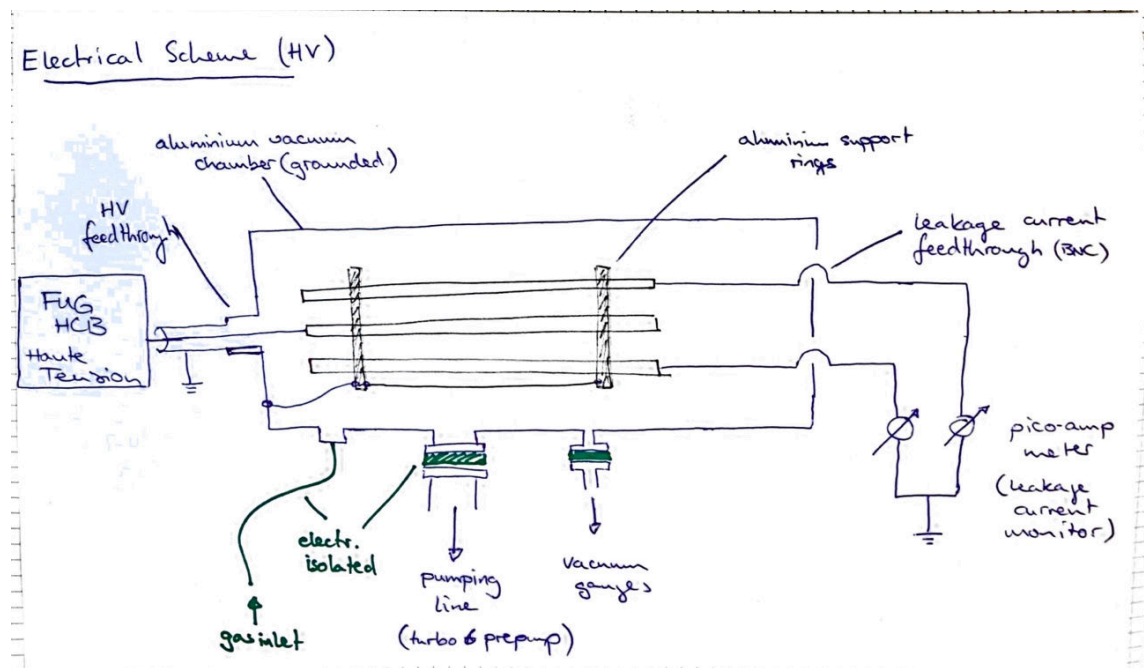 Electrical Scheme (HV)
aluminium vacuum
chamber (grounded)
aluminium support
rings
HV
feedthrough
leakage current
feedthrough (BNC)
FUG
HCB
Haute
Tension
pico-amp
meter
(leakage
current
monitor)
electr.
isolated
gas inlet
pumping
line
(turbo & prepump)
vacuum
gauges